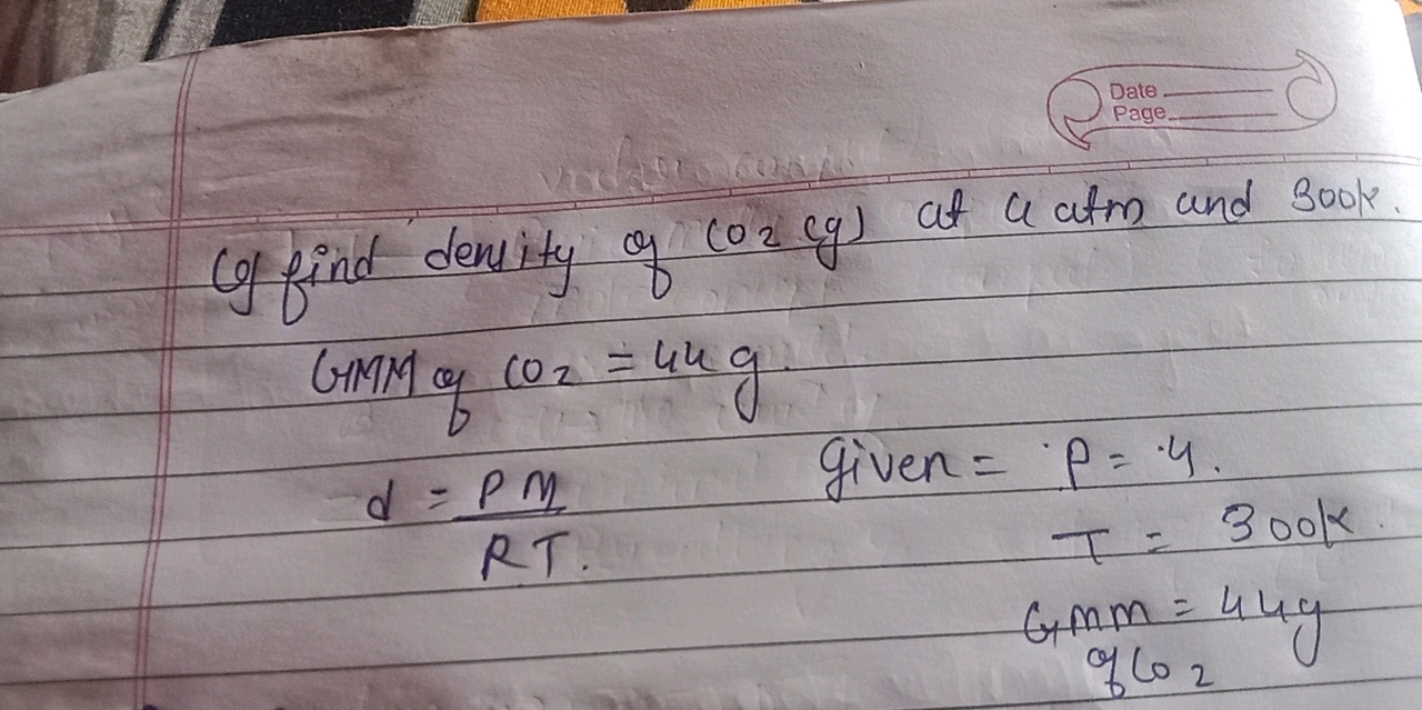 Date
Page
Q find density of CO2 (g) at 4 atm and 300K.
GMM of CO2 = 44g.
d = PM
RT.
Given = P = 4.
T = 300K.
GMM = 44g
of CO2